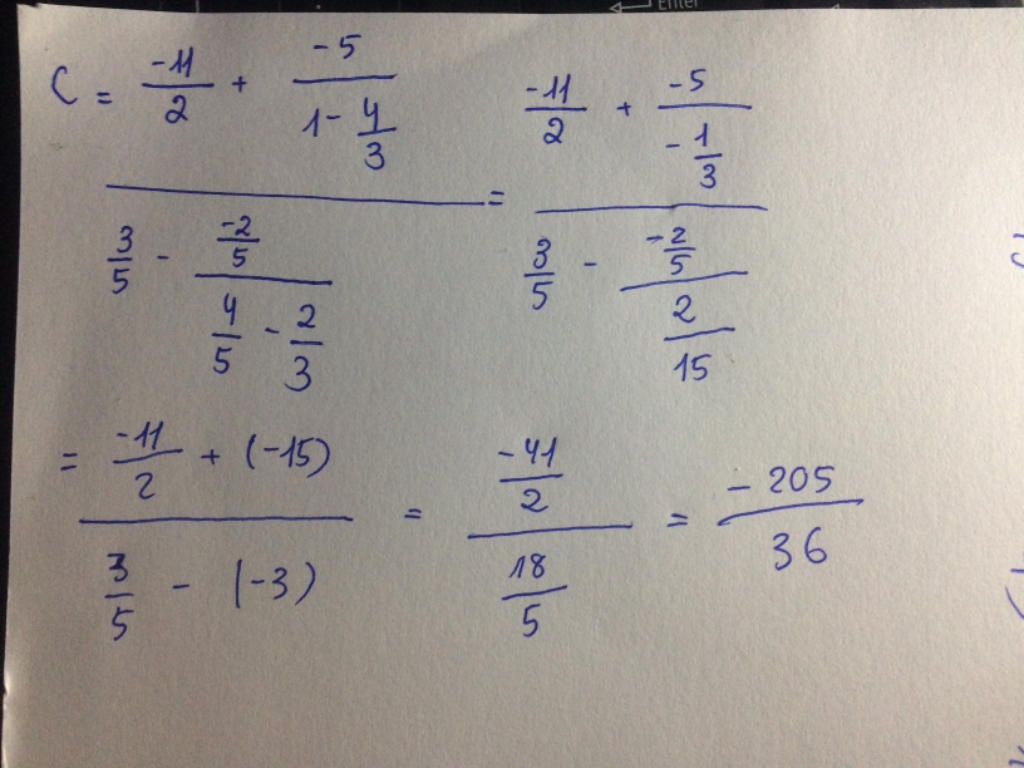 Enter
C = \frac{\frac{-11}{2} + \frac{-5}{1 - \frac{4}{3}}}{\frac{3}{5} - \frac{\frac{-2}{5}}{\frac{4}{5} - \frac{2}{3}}} = \frac{\frac{-11}{2} + \frac{-5}{-\frac{1}{3}}}{\frac{3}{5} - \frac{\frac{-2}{5}}{\frac{2}{15}}}
= \frac{\frac{-11}{2} + (-15)}{\frac{3}{5} - (-3)} = \frac{\frac{-41}{2}}{\frac{18}{5}} = \frac{-205}{36}